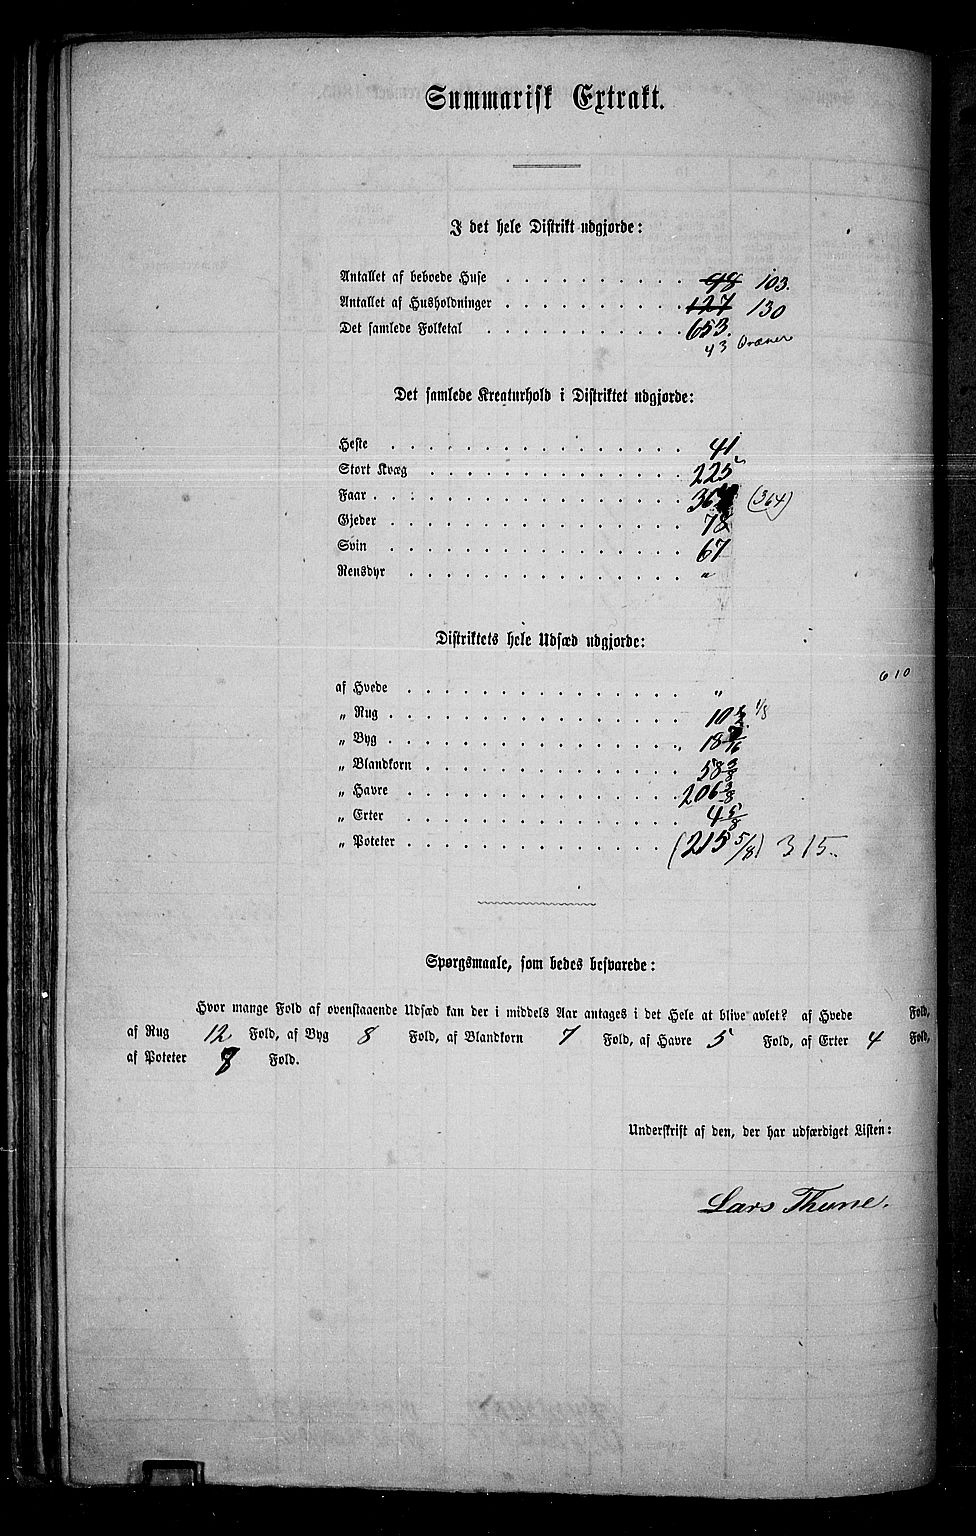 Summarisk Extrakt.
I det hele Distrikt udgjorde:
Antallet af beboede Huse . . . . . . . . 98 103.
Antallet af Husholdninger . . . . . . . . 127 130
Det samlede Folketal . . . . . . . . 653.
43
Det samlede Kreaturhold i Distriktet udgjorde:
Heste . . . . . . . . 41
Stort Kvæg . . . . . . . . 225
Faar . . . . . . . . (364)
Gjeder . . . . . . . . 78
Svin . . . . . . . . 67
Rensdyr . . . . . . . . "
Distriktets hele Udsæd udgjorde:
af Hvede . . . . . . . . "
610
„ Rug . . . . . . . . 10
„ Byg . . . . . . . . 18
„ Blandkorn . . . . . . . . 58 3/8
„ Havre . . . . . . . . 206 3/8
„ Erter . . . . . . . . 4 5/8
„ Poteter . . . . . . . . (215 5/8) 315.
Spørgsmaale, som bedes besvarede:
Hvor mange Fold af ovenstaaende Udsæd kan der i middels Aar antages i det Hele at blive avlet? af Hvede Fold,
af Rug 12 Fold, af Byg 8 Fold, af Blandkorn 7 Fold, af Havre 5 Fold, af Erter 4 Fold,
af Poteter 8 Fold.
Underskrift af den, der har udfærdiget Listen:
Lars Thune.